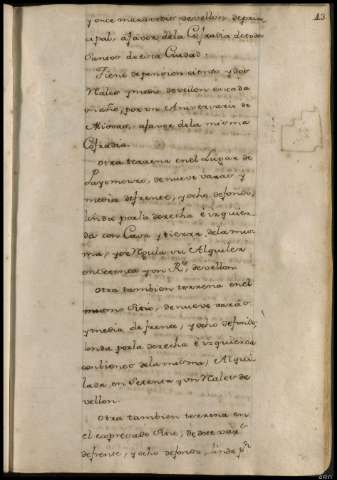 13
y once maravedis de vellon de prin
cipal, a favor de la Cofradia de todos
Santos de esta Ciudad.
Tiene de pension ciento y dos
Reales y medio de vellon en cada
un año, por un Aniversario de
Missas, a favor de la misma
Cofradia.
Otra terrena en el Lugar de
de nueve varas y
media de frente, y ocho de fondo,
linda por la derecha è izquier
da con Casa y tierra de la mis
ma, y se regula su Alquiler
en Setenta y un R.s de vellon.
Otra tambien terrena en el
mismo Sitio, de nueve varas
y media de frente, y ocho de fondo,
linda por la derecha è izquierda
con bienes de la misma, Alqui
lada en Setenta y un Reales de
vellon.
Otra tambien terrena en
el expresado Sitio, de doce varas
de frente, y ocho de fondo, linda p.r